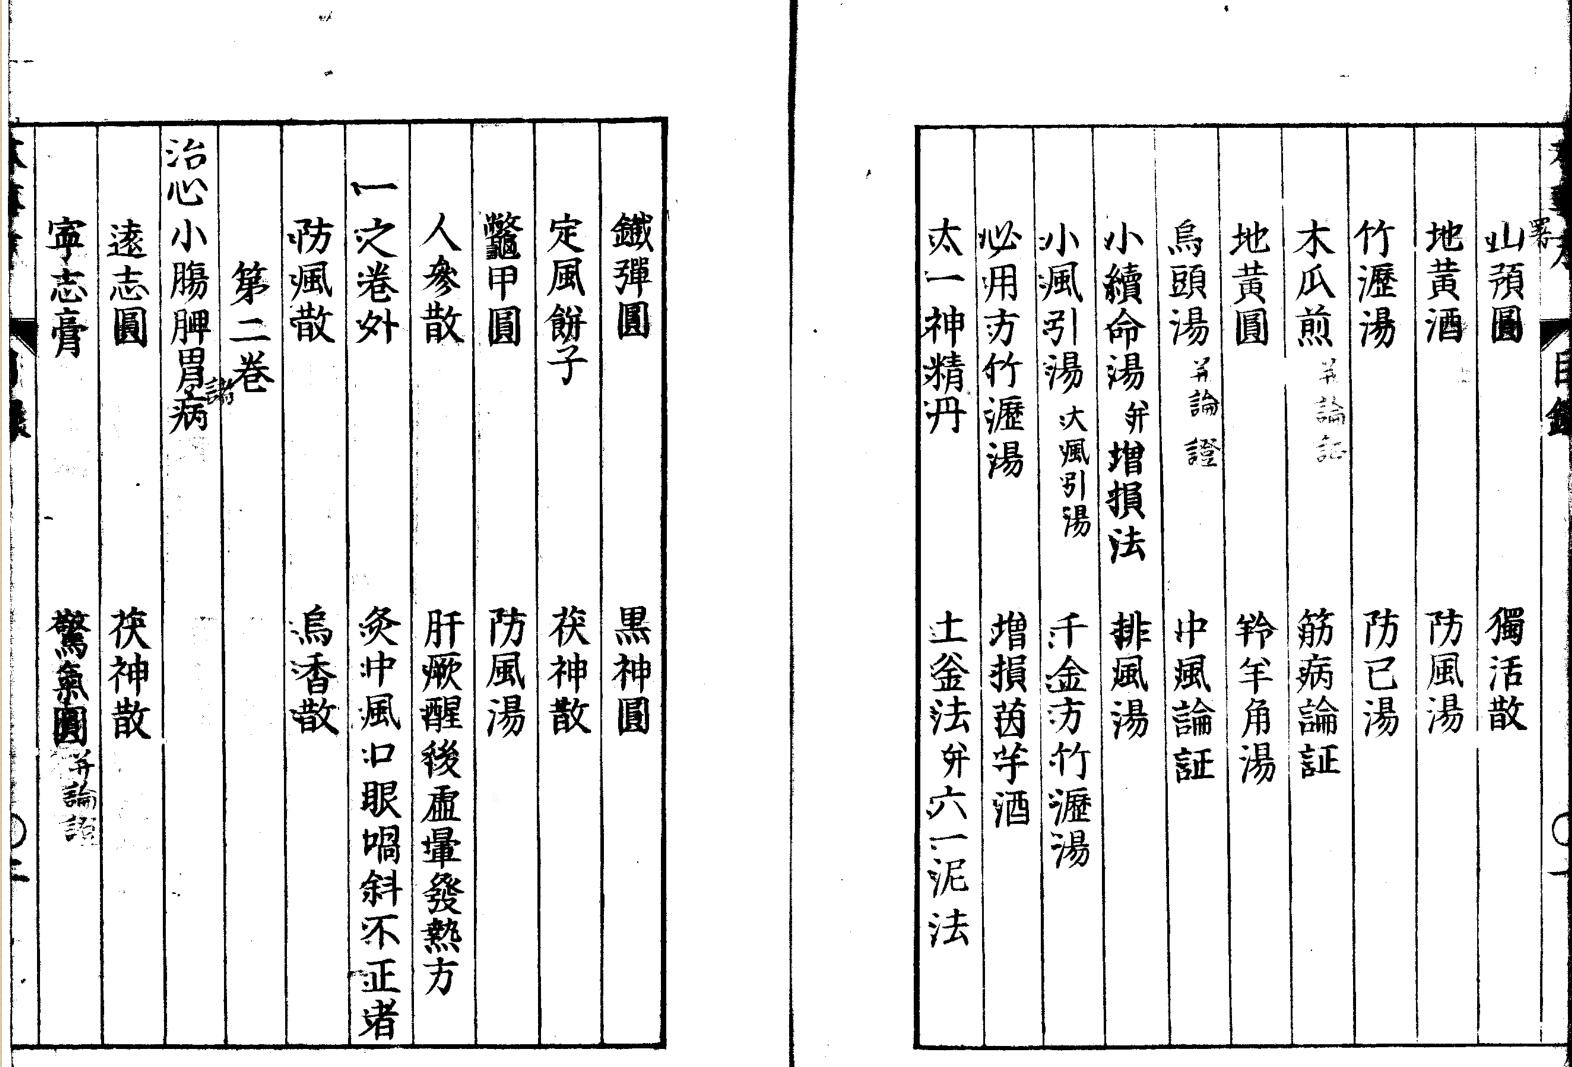 山預圓　獨活散
地黃酒　防風湯
竹瀝湯　防已湯
木瓜煎 并論証　筋病論証
地黃圓　羚羊角湯
烏頭湯 并論證　中風論証
小續命湯 并增損法　排風湯
小風引湯 大風引湯　千金方竹瀝湯
必用方竹瀝湯　增損茵芋酒
太一神精丹　土釜法并六一泥法
鐵彈圓　黑神圓
定風餅子　茯神散
鼈甲圓　防風湯
人參散　肝厥醒後虛暈發熱方
一之卷外　灸中風口眼喎斜不正者
防風散　烏香散
第二卷
治心小腸脾胃諸病
遠志圓　茯神散
寧志膏　驚氣圓 并論證